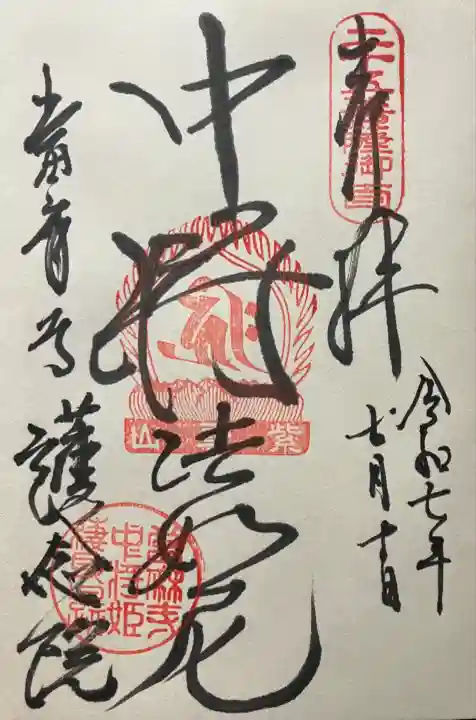 奉拝
令和七年
七月十日
中将法如尼
紫雲山
當麻寺
護念院
當麻寺
中将姫